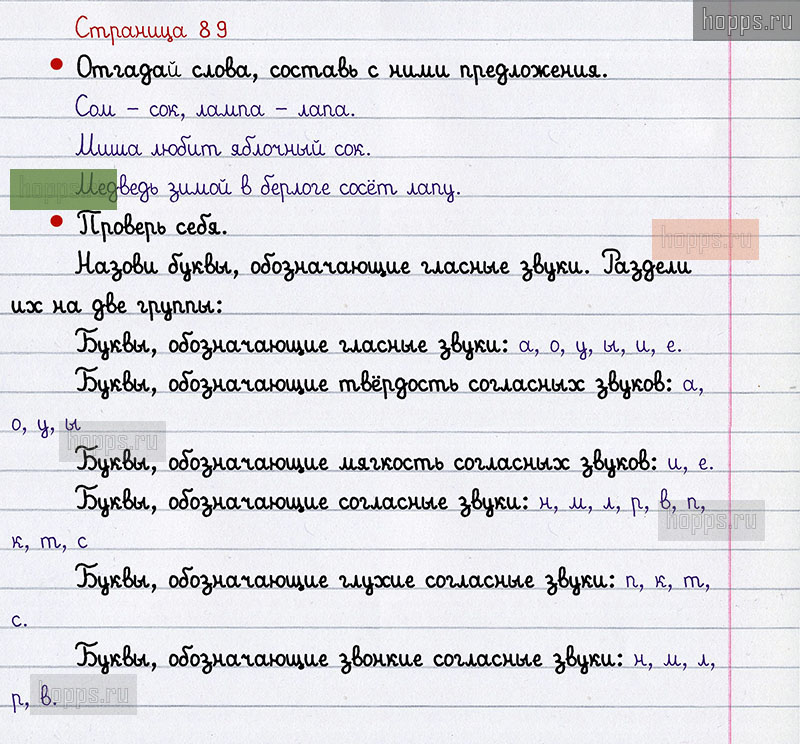 hopps.ru
Страница 89
Отгадай слова, составь с ними предложения.
Сом – сок, лампа – лапа.
Миша любит яблочный сок.
Медведь зимой в берлоге сосёт лапу.
hopps.ru
Проверь себя.
hopps.ru
Назови буквы, обозначающие гласные звуки. Раздели
их на две группы:
Буквы, обозначающие гласные звуки: а, о, у, ы, и, е.
Буквы, обозначающие твёрдость согласных звуков: а,
о, у, ы
hopps.ru
Буквы, обозначающие мягкость согласных звуков: и, е.
Буквы, обозначающие согласные звуки: н, м, л, р, в, п,
hopps.ru
к, т, с
Буквы, обозначающие глухие согласные звуки: п, к, т,
с.
Буквы, обозначающие звонкие согласные звуки: н, м, л,
р, в.
hopps.ru